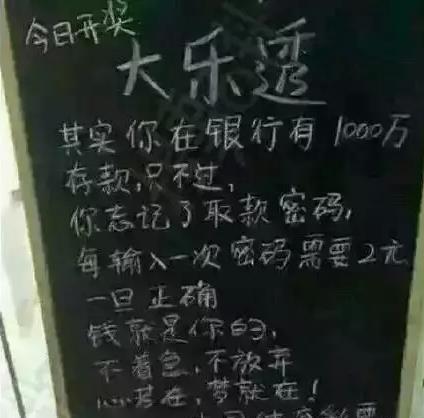 今日开奖
大乐透
其实你在银行有1000万
存款,只不过,
你忘记了取款密码,
每输入一次密码需要2元
一旦正确
钱就是你的,
不着急,不放弃
心若在,梦就在!